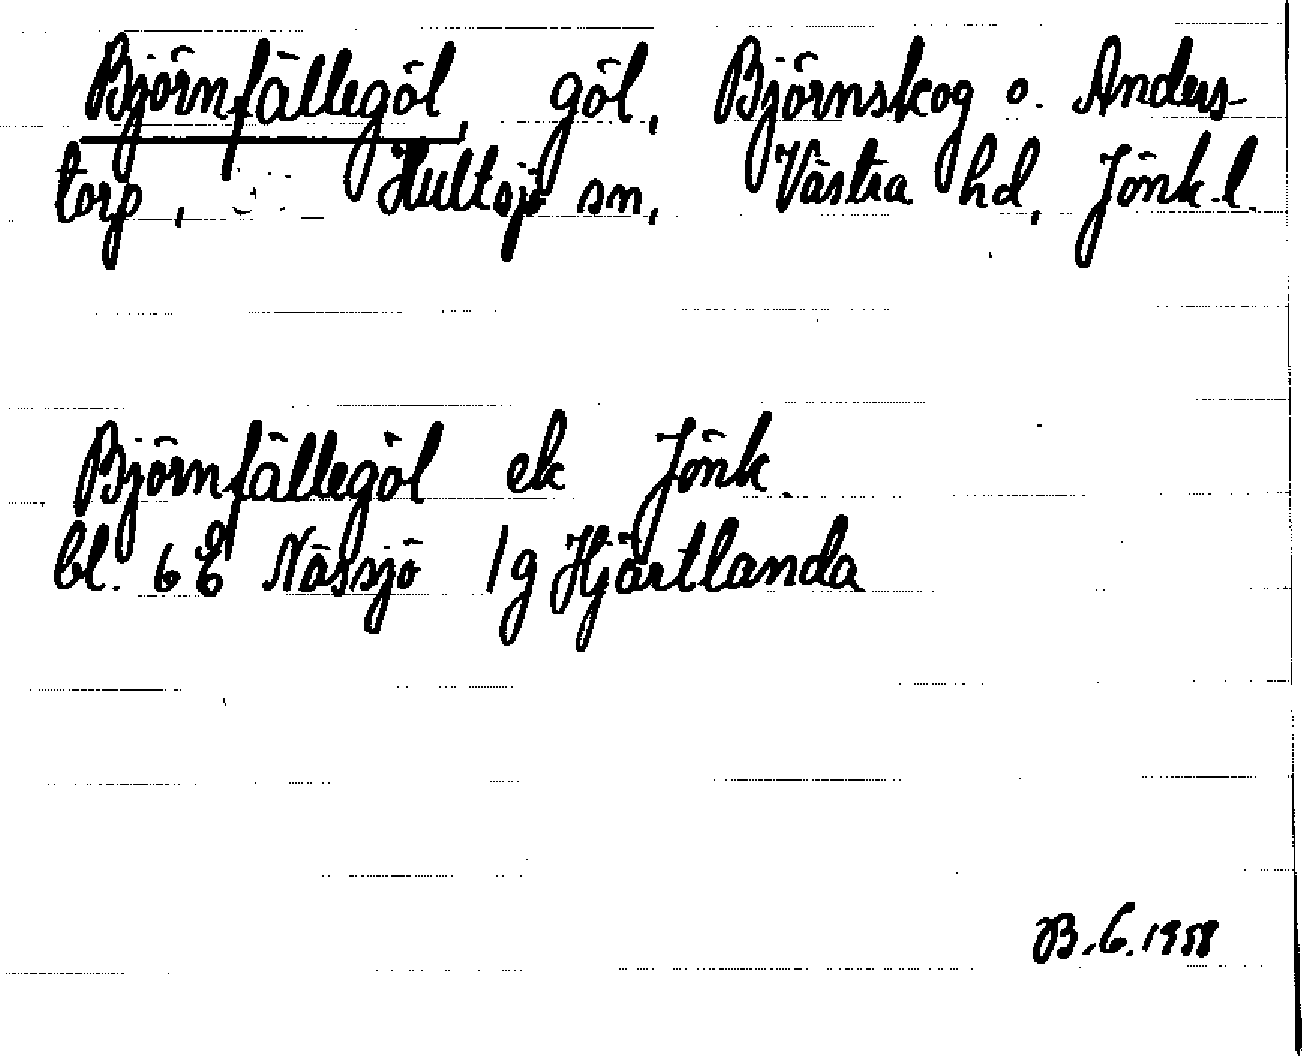 Björnfällegöl, göl, Björnskog o. Anders-
torp, Hultsjö sn, Västra hd, Jönk. l.
Björnfällegöl ek Jönk.
bl. 6 E Nässjö 1g Hjärtlanda
B. G. 1958